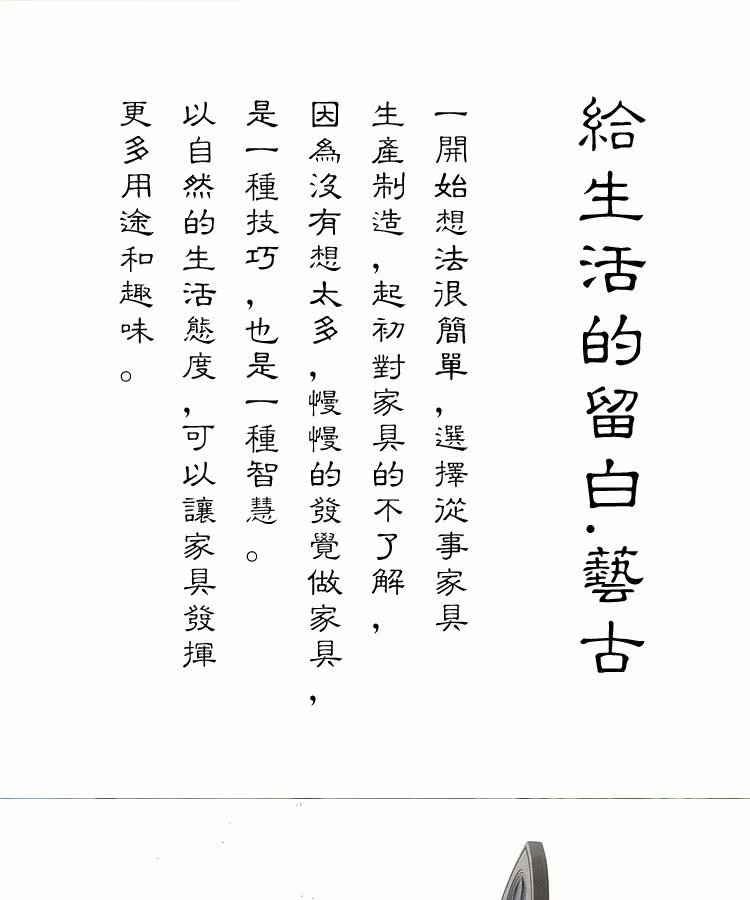 給生活的留白·藝古
一開始想法很簡單，選擇從事家具
生產制造，起初對家具的不了解，
因為沒有想太多，慢慢的發覺做家具，
是一種技巧，也是一種智慧。
以自然的生活態度，可以讓家具發揮
更多用途和趣味。